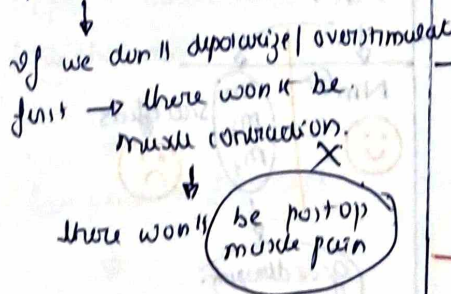 If we don't depolarize/overstimulat
first → there won't be
muscle contraction.
X
there won't be postop
muscle pain